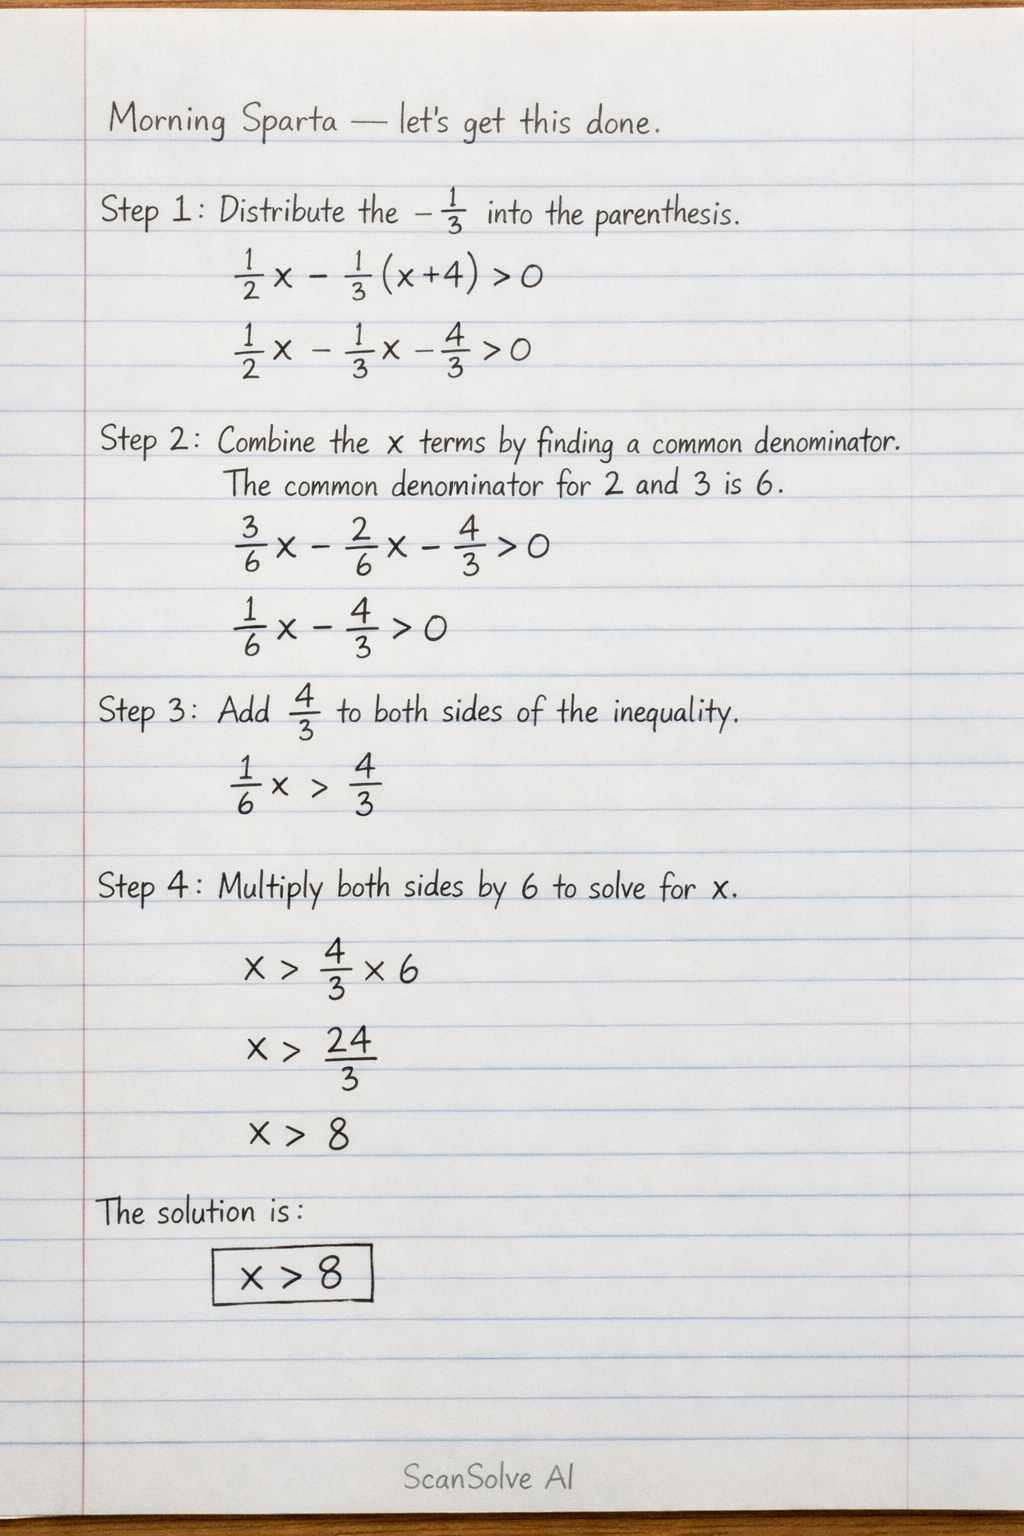 Morning Sparta — let's get this done.
Step 1: Distribute the -1/3 into the parenthesis.
1/2 x - 1/3 (x+4) > 0
1/2 x - 1/3 x - 4/3 > 0
Step 2: Combine the x terms by finding a common denominator.
The common denominator for 2 and 3 is 6.
3/6 x - 2/6 x - 4/3 > 0
1/6 x - 4/3 > 0
Step 3: Add 4/3 to both sides of the inequality.
1/6 x > 4/3
Step 4: Multiply both sides by 6 to solve for x.
x > 4/3 × 6
x > 24/3
x > 8
The solution is:
x > 8
ScanSolve AI